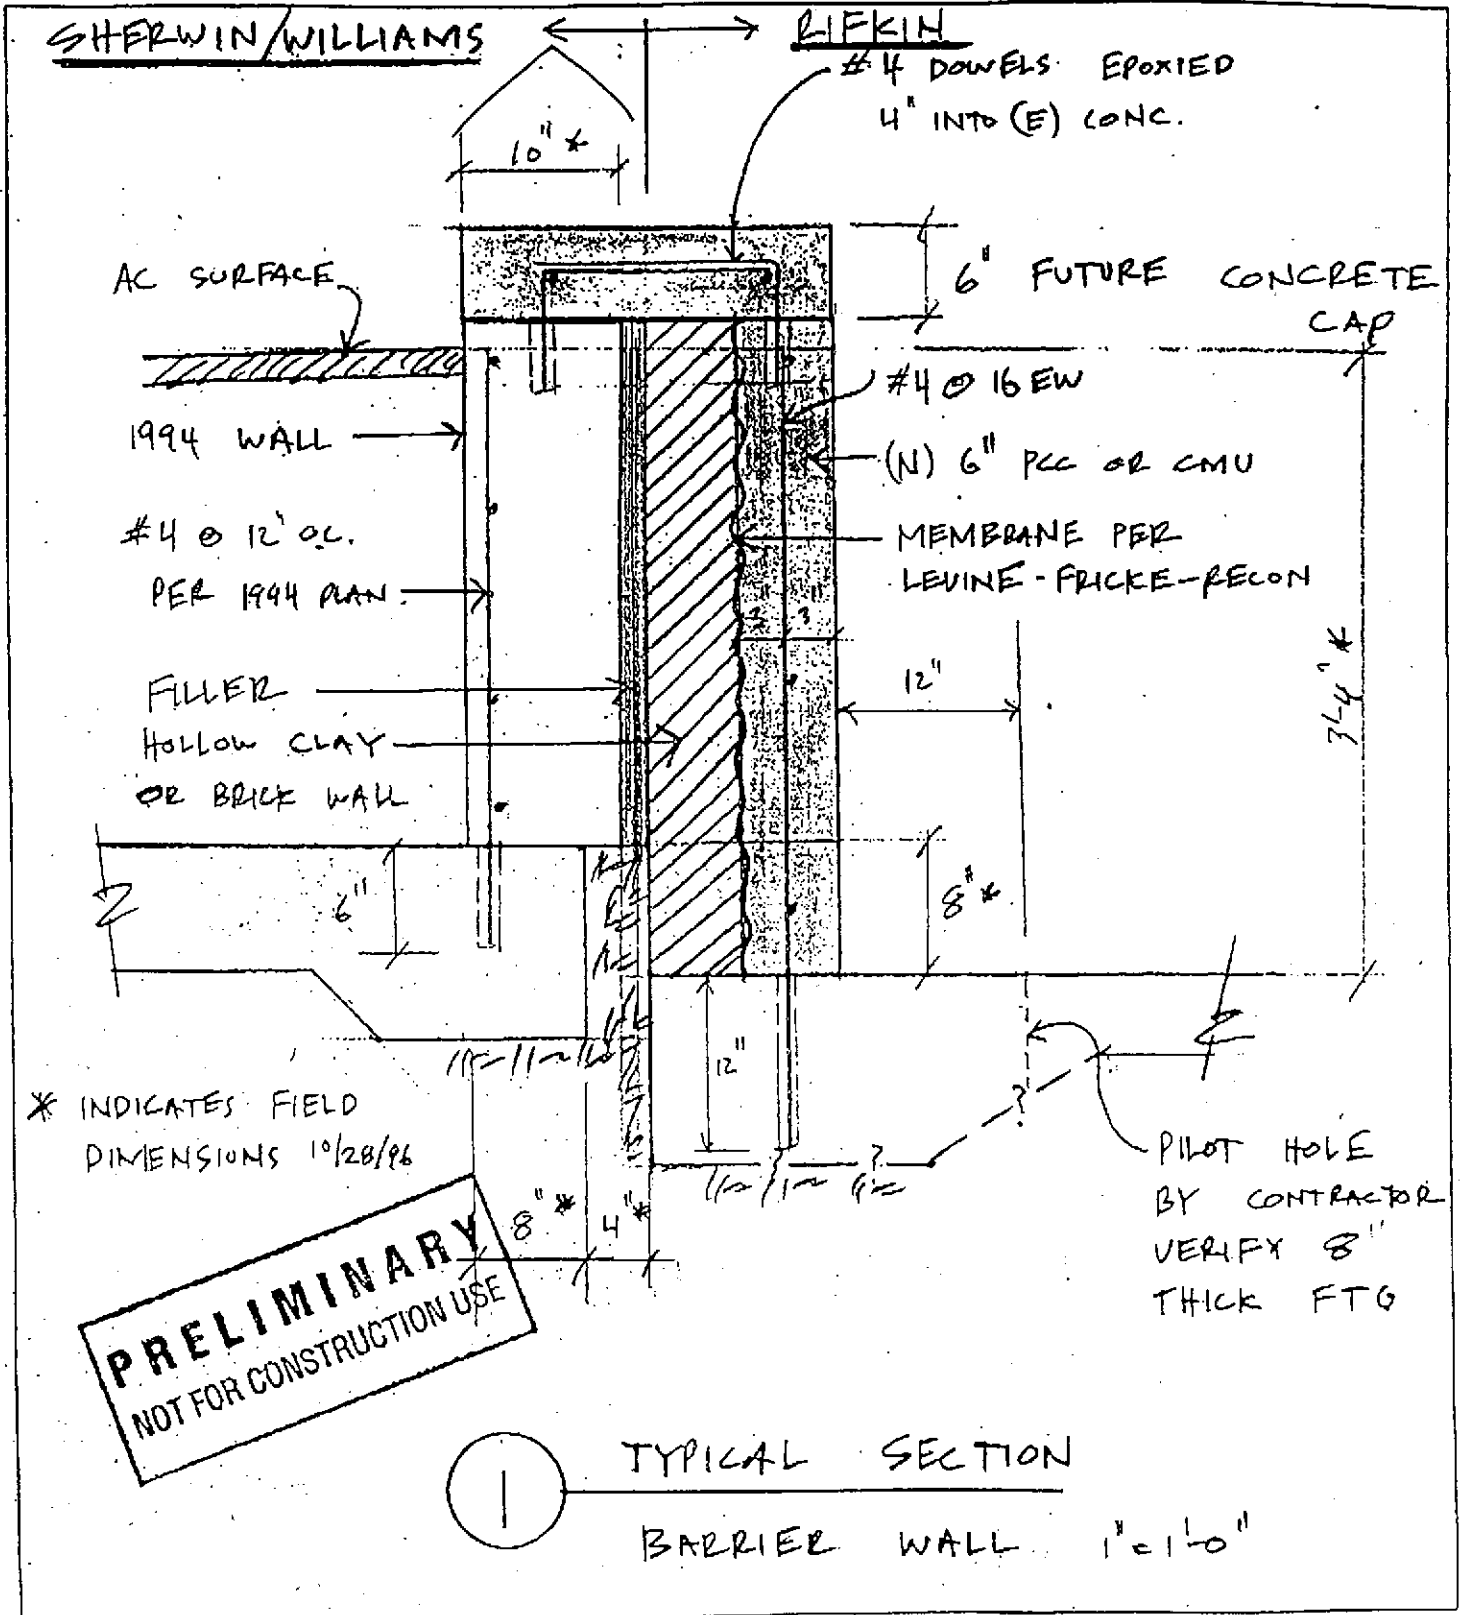 SHERWIN/WILLIAMS
RIFKIN
#4 DOWELS EPOXIED
4" INTO (E) CONC.
10" *
AC SURFACE
6" FUTURE CONCRETE
CAP
#4 @ 16 EW
1994 WALL
(N) 6" PCC OR CMU
#4 @ 12" O.C.
PER 1994 PLAN.
MEMBRANE PER
LEVINE-FRICKE-RECON
3" 3"
FILLER
12"
3'-4" *
HOLLOW CLAY
OR BRICK WALL
6"
8" *
12"
* INDICATES FIELD
DIMENSIONS 10/28/96
?
?
?
PILOT HOLE
BY CONTRACTOR
VERIFY 8"
THICK FTG
8" *
4" *
PRELIMINARY
NOT FOR CONSTRUCTION USE
1
TYPICAL SECTION
BARRIER WALL 1" = 1'-0"